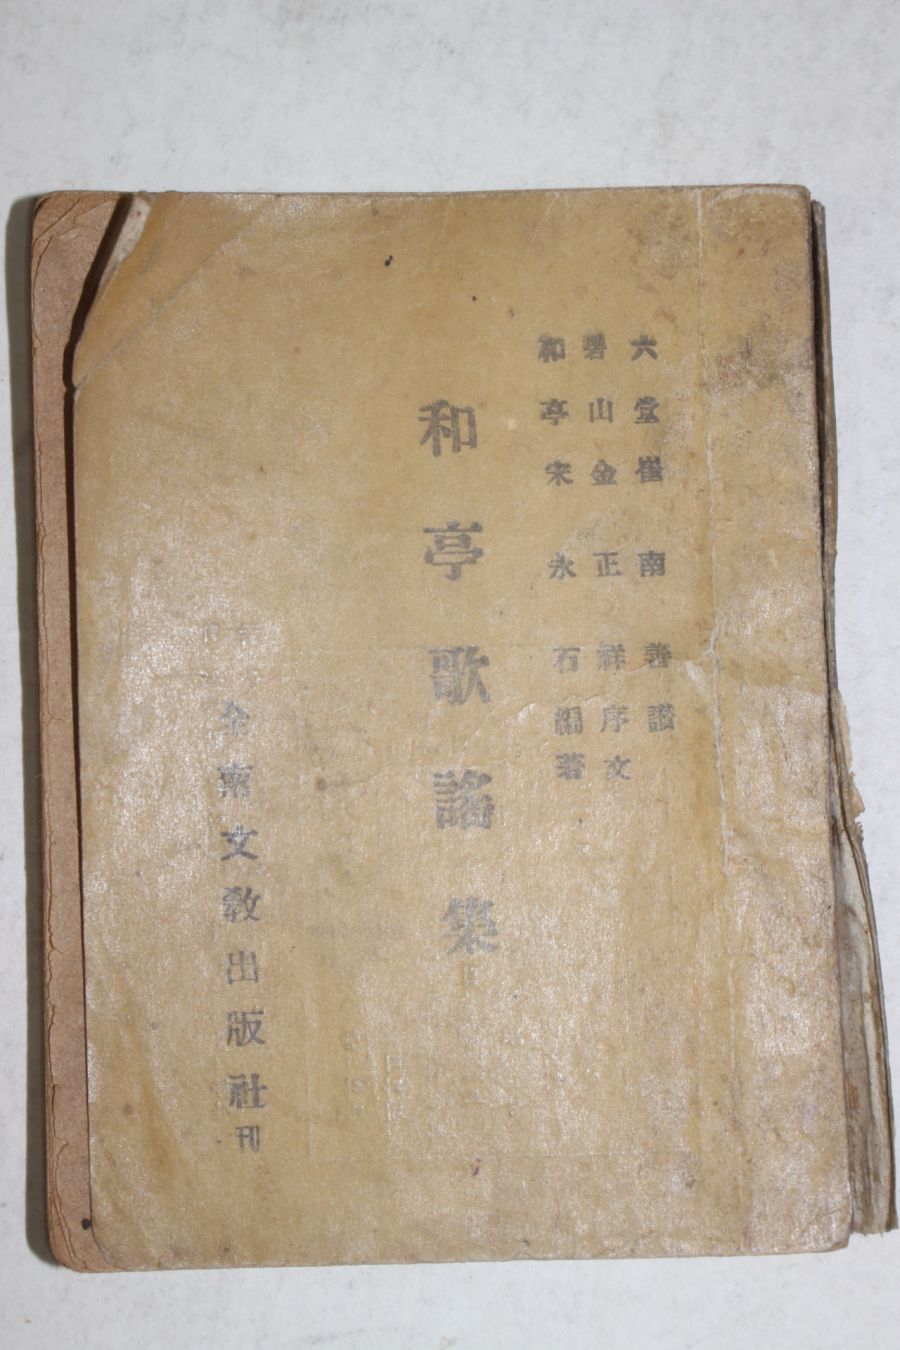 六堂崔南善讃
碧山金正祥序文
和亭宋永石編著
和亭歌謠集
全南文敎出版社刊